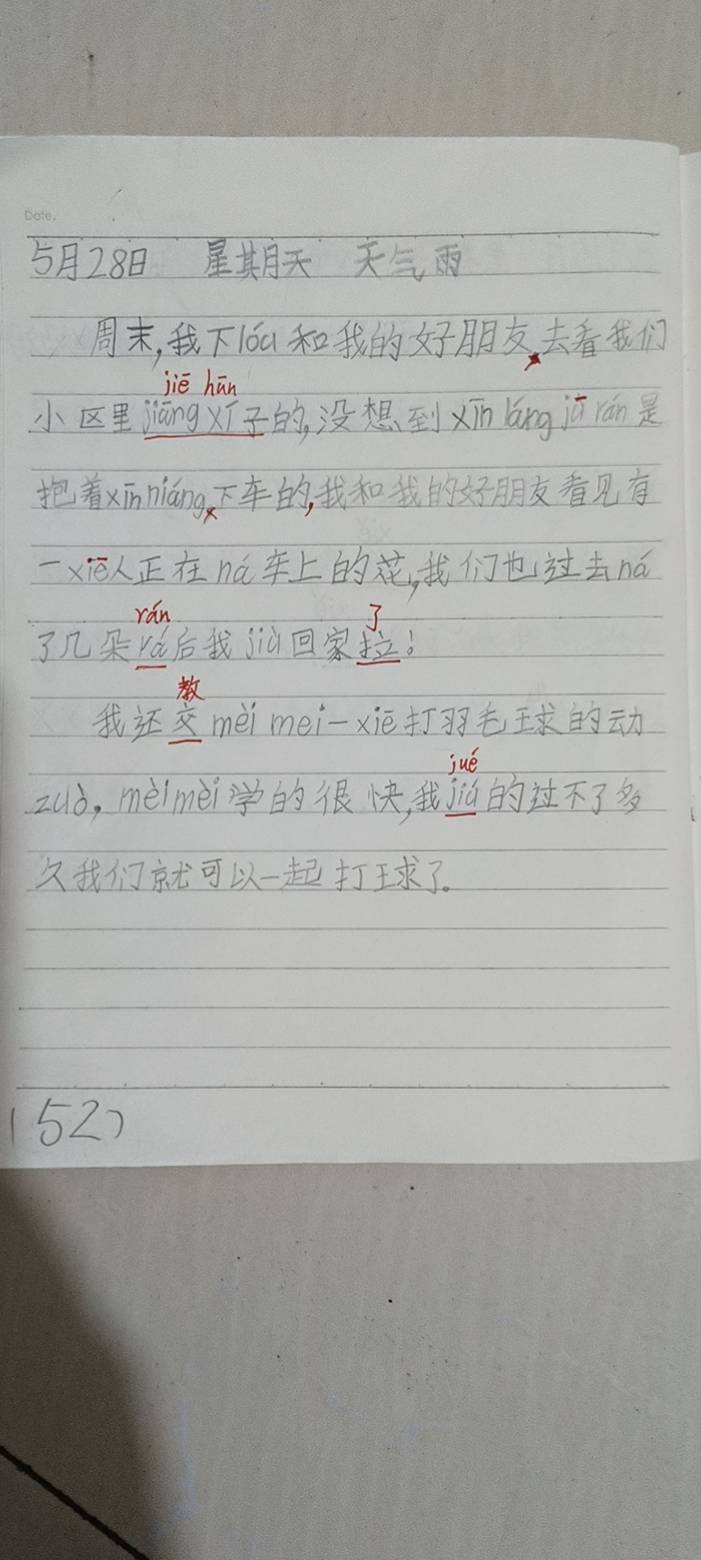 Date.
5月28日 星期天 天气雨
周末,我下lóu和我的好朋友,去看我们
jiē hūn
小区里jiāng xí子的,没想到xīn láng jū rán是
抱着xīn niáng,下车的,我和我的好朋友看见有
一xiē人正在ná车上的花,我们也过去ná
rán 了
了几朵rá后我jiù回家拉!
教
我还交mèi mei一xiē打羽毛球的动
jué
zuò,mèi mèi学的很快,我jiá的过不了多
久我们就可以一起打球了。
(52)